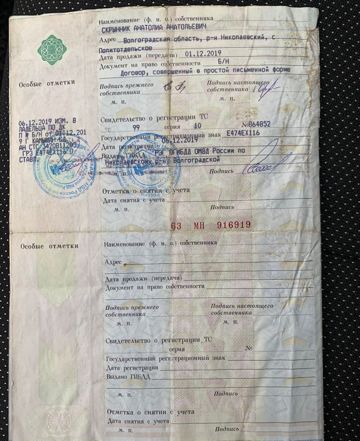 Наименование (ф. и. о.) собственника
СКРЫННИК АНАТОЛИЙ АНАТОЛЬЕВИЧ
Адрес Волгоградская область, р-н Николаевский, с
Политотдельское
Дата продажи (передачи) 01.12.2019
Документ на право собственности Б/Н
Договор, совершенный в простой письменной форме
Особые отметки
Подпись прежнего собственника
Подпись настоящего собственника
М. П.
М. П.
06.12.2019 ИЗМ. В
Свидетельство о регистрации ТС
99 серия 10 № 064852
Государственный регистрационный знак Е474ЕХ116
Дата регистрации 06.12.2019
ОГИБДД ОМВД России по
Николаевскому р-ну Волгоградской
М. П.
Подпись
Отметка о снятии с учета
Дата снятия с учета
М. П.
Подпись
63 МН 916919
Особые отметки
Наименование (ф. и. о.) собственника
Адрес
Дата продажи (передачи)
Документ на право собственности
Подпись прежнего собственника
Подпись настоящего собственника
М. П.
М. П.
Свидетельство о регистрации ТС
серия №
Государственный регистрационный знак
Дата регистрации
Выдано ГИБДД
М. П.
Подпись
Отметка о снятии с учета
Дата снятия с учета